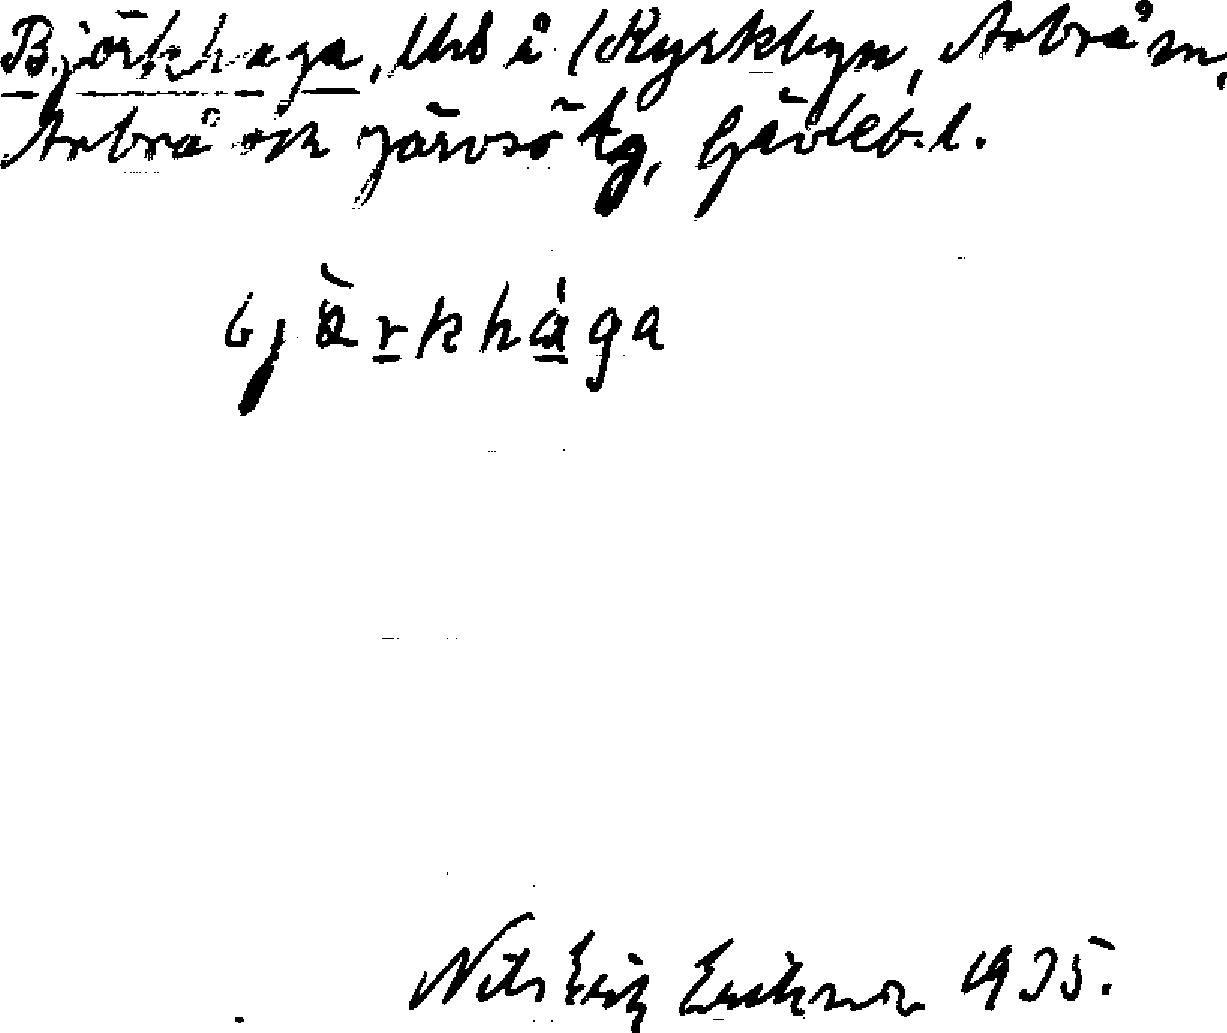 Björkhaga, Uhs i Kyrkbyn, Arbrå sn,
Arbrå och Järvsö tg, Gävleb. l.
bjärkhága
Nils Erik Eriksson 1935.